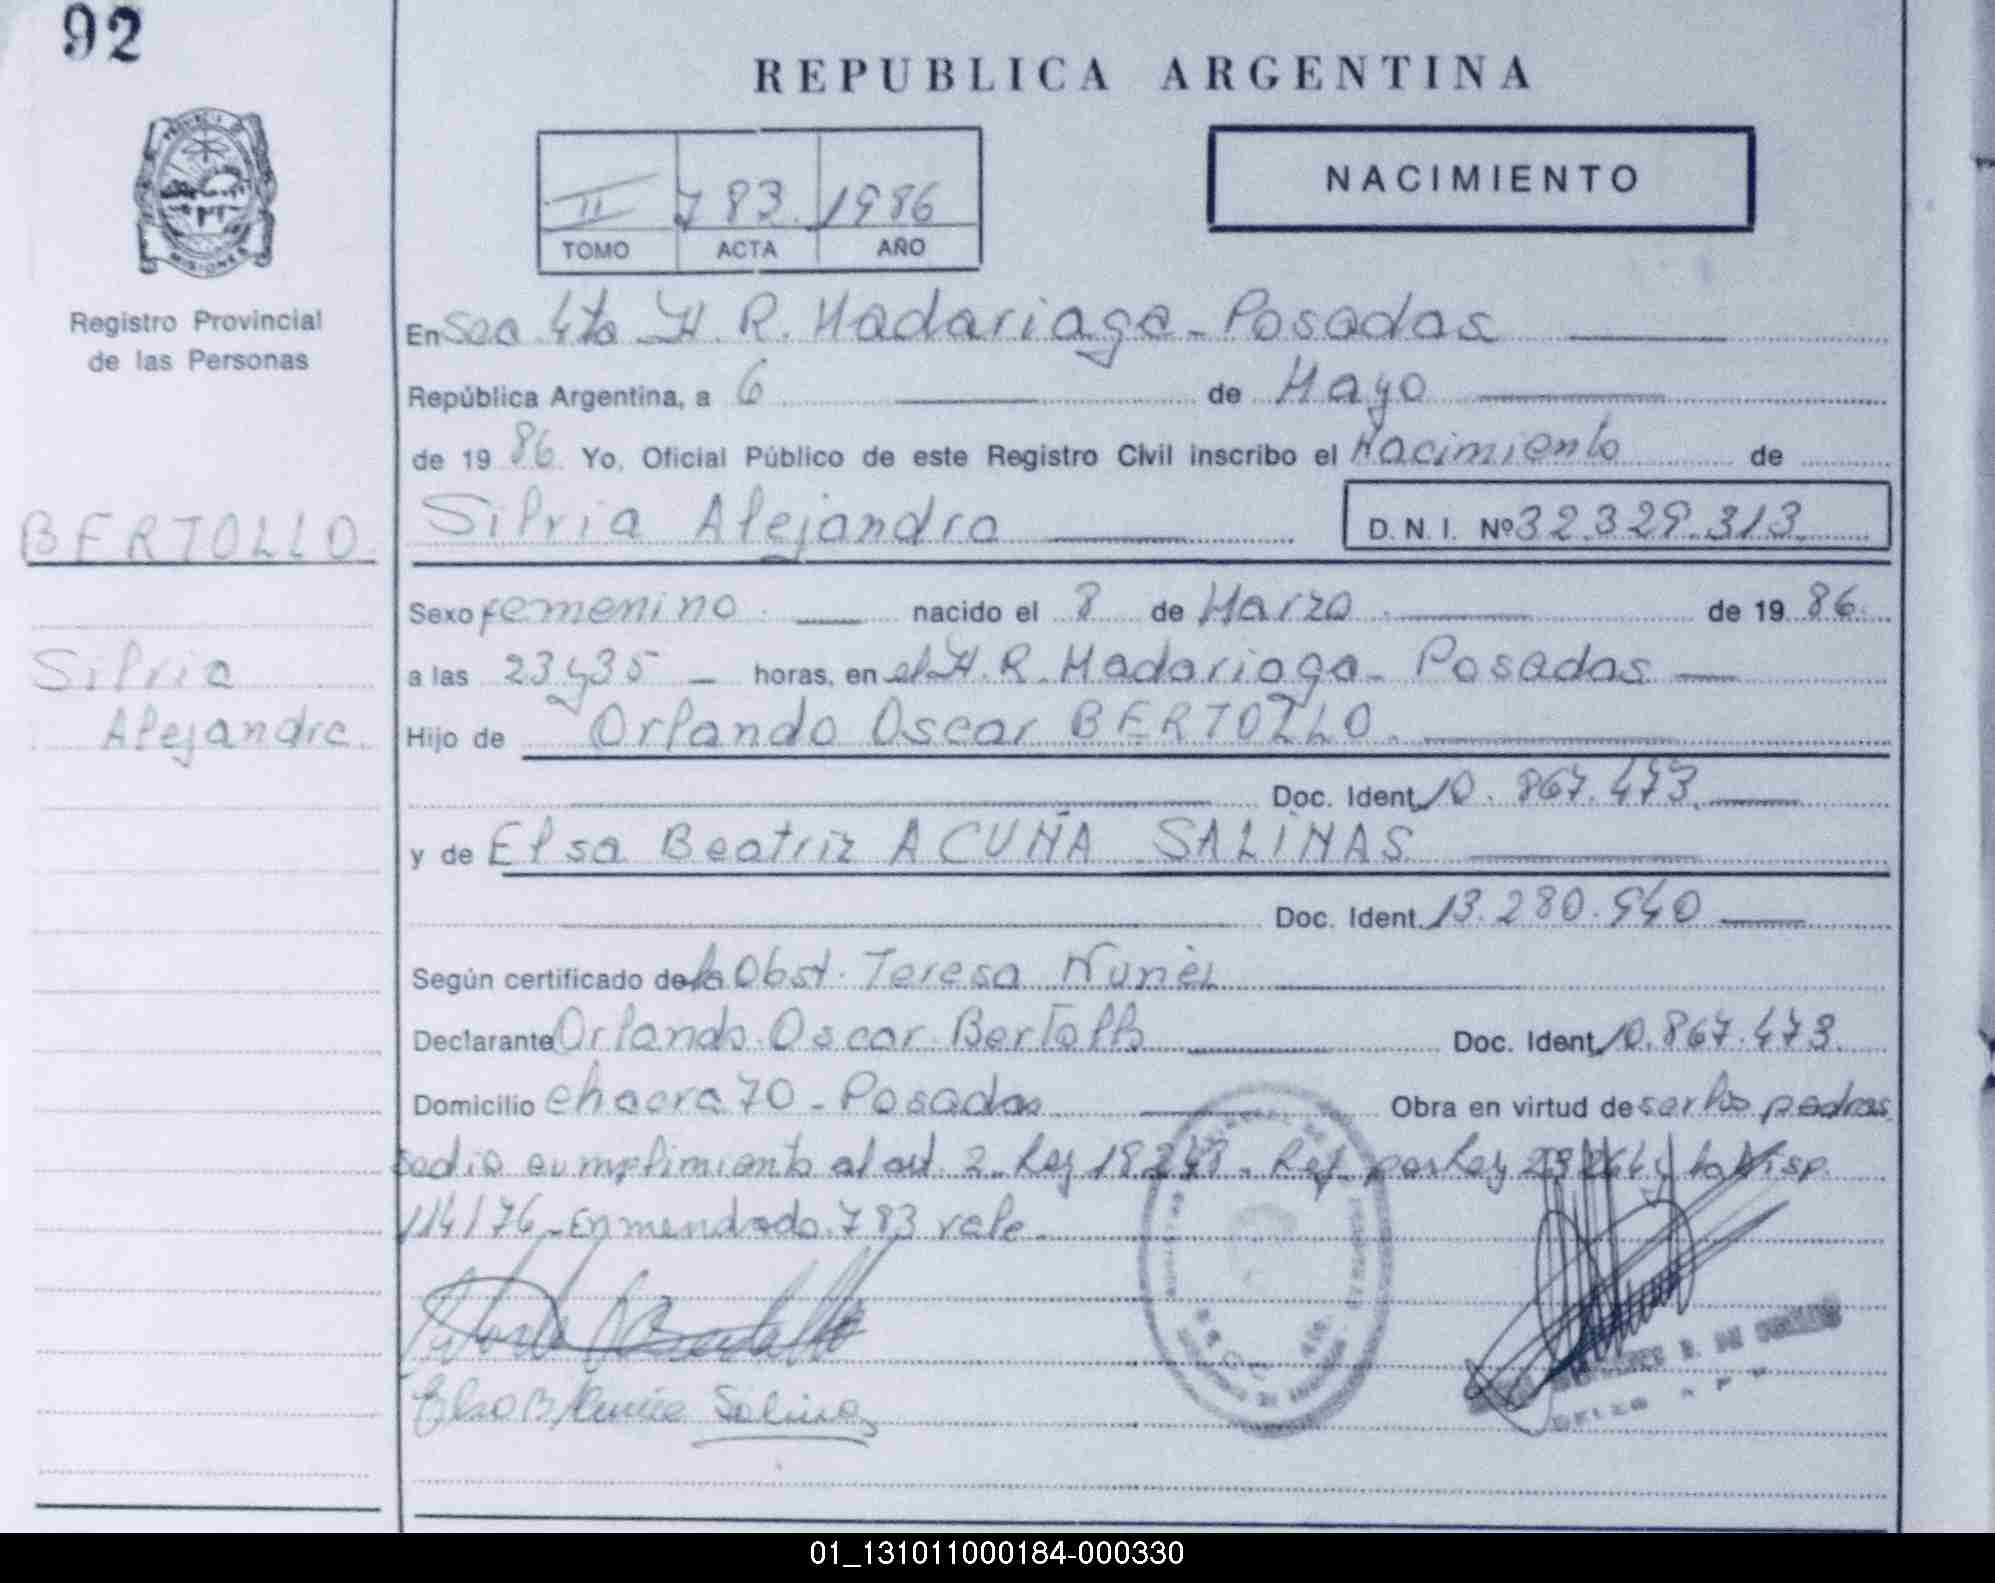 92
REPUBLICA ARGENTINA
PROVINCIA DE
MISIONES
Registro Provincial
de las Personas
II 783. 1986
TOMO ACTA AÑO
NACIMIENTO
En Sec 4ta H. R. Madariaga - Posadas
República Argentina, a 6 de Mayo
de 19 86 Yo, Oficial Público de este Registro Civil inscribo el Nacimiento de
BERTOLLO
Silvia Alejandra
D. N. I. Nº 32.329.313
Sexo femenino nacido el 8 de Marzo de 19 86.
Silvia
Alejandra.
a las 23 y 35 horas, en el H. R. Madariaga - Posadas
Hijo de Orlando Oscar BERTOLLO.
Doc. Ident. 10.867.473.
y de Elsa Beatriz ACUÑA SALINAS
Doc. Ident. 13.280.940
Según certificado de la Obst. Teresa Nuñez
Declarante Orlando Oscar Bertollo Doc. Ident. 10.867.473.
Domicilio chacra 70 - Posadas Obra en virtud de ser los padres
se dio cumplimiento al art. 2 - Ley 18.248 - Ref. por Ley la Disp.
114/76 - Enmendado. 783 vale.
Elsa B Acuña Salinas
01_131011000184-000330